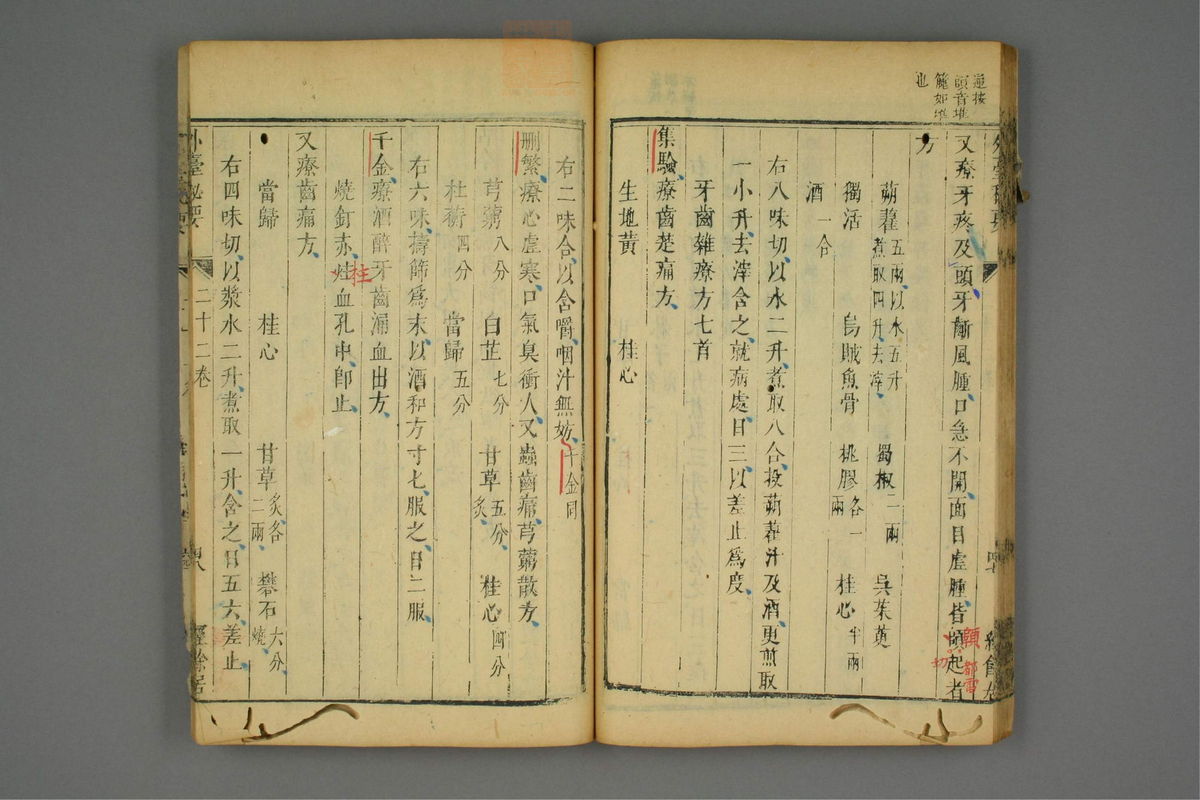 又療牙疼及頭牙齗風腫口急不開面目虛腫皆䪼起者
方
蒴藋五兩以水五升煮取四升去滓 蜀椒二兩 吳茱萸
獨活 烏賊魚骨 桃膠各一兩 桂心半兩
酒一合
右八味切以水二升煮取八合投蒴藋汁及酒更煎取
一小升去滓含之就病處日三以差止爲度
牙齒雜療方七首
集驗療齒楚痛方
生地黄 桂心
右二味合以含嚼咽汁無妨千金同
刪繁療心虛寒口氣臭衝人又蟲齒痛芎藭散方
芎藭八分 白芷七分 甘草五分炙 桂心四分
杜蘅四分 當歸五分
右六味擣篩爲末以酒和方寸匕服之日二服
千金療酒醉牙齒漏血出方
燒釘赤炷血孔中即止
柱
又療齒痛方
當歸 桂心 甘草炙各二兩 礬石六分燒
右四味切以漿水二升煮取一升含之日五六差止
外臺祕要 二十二卷 經餘居